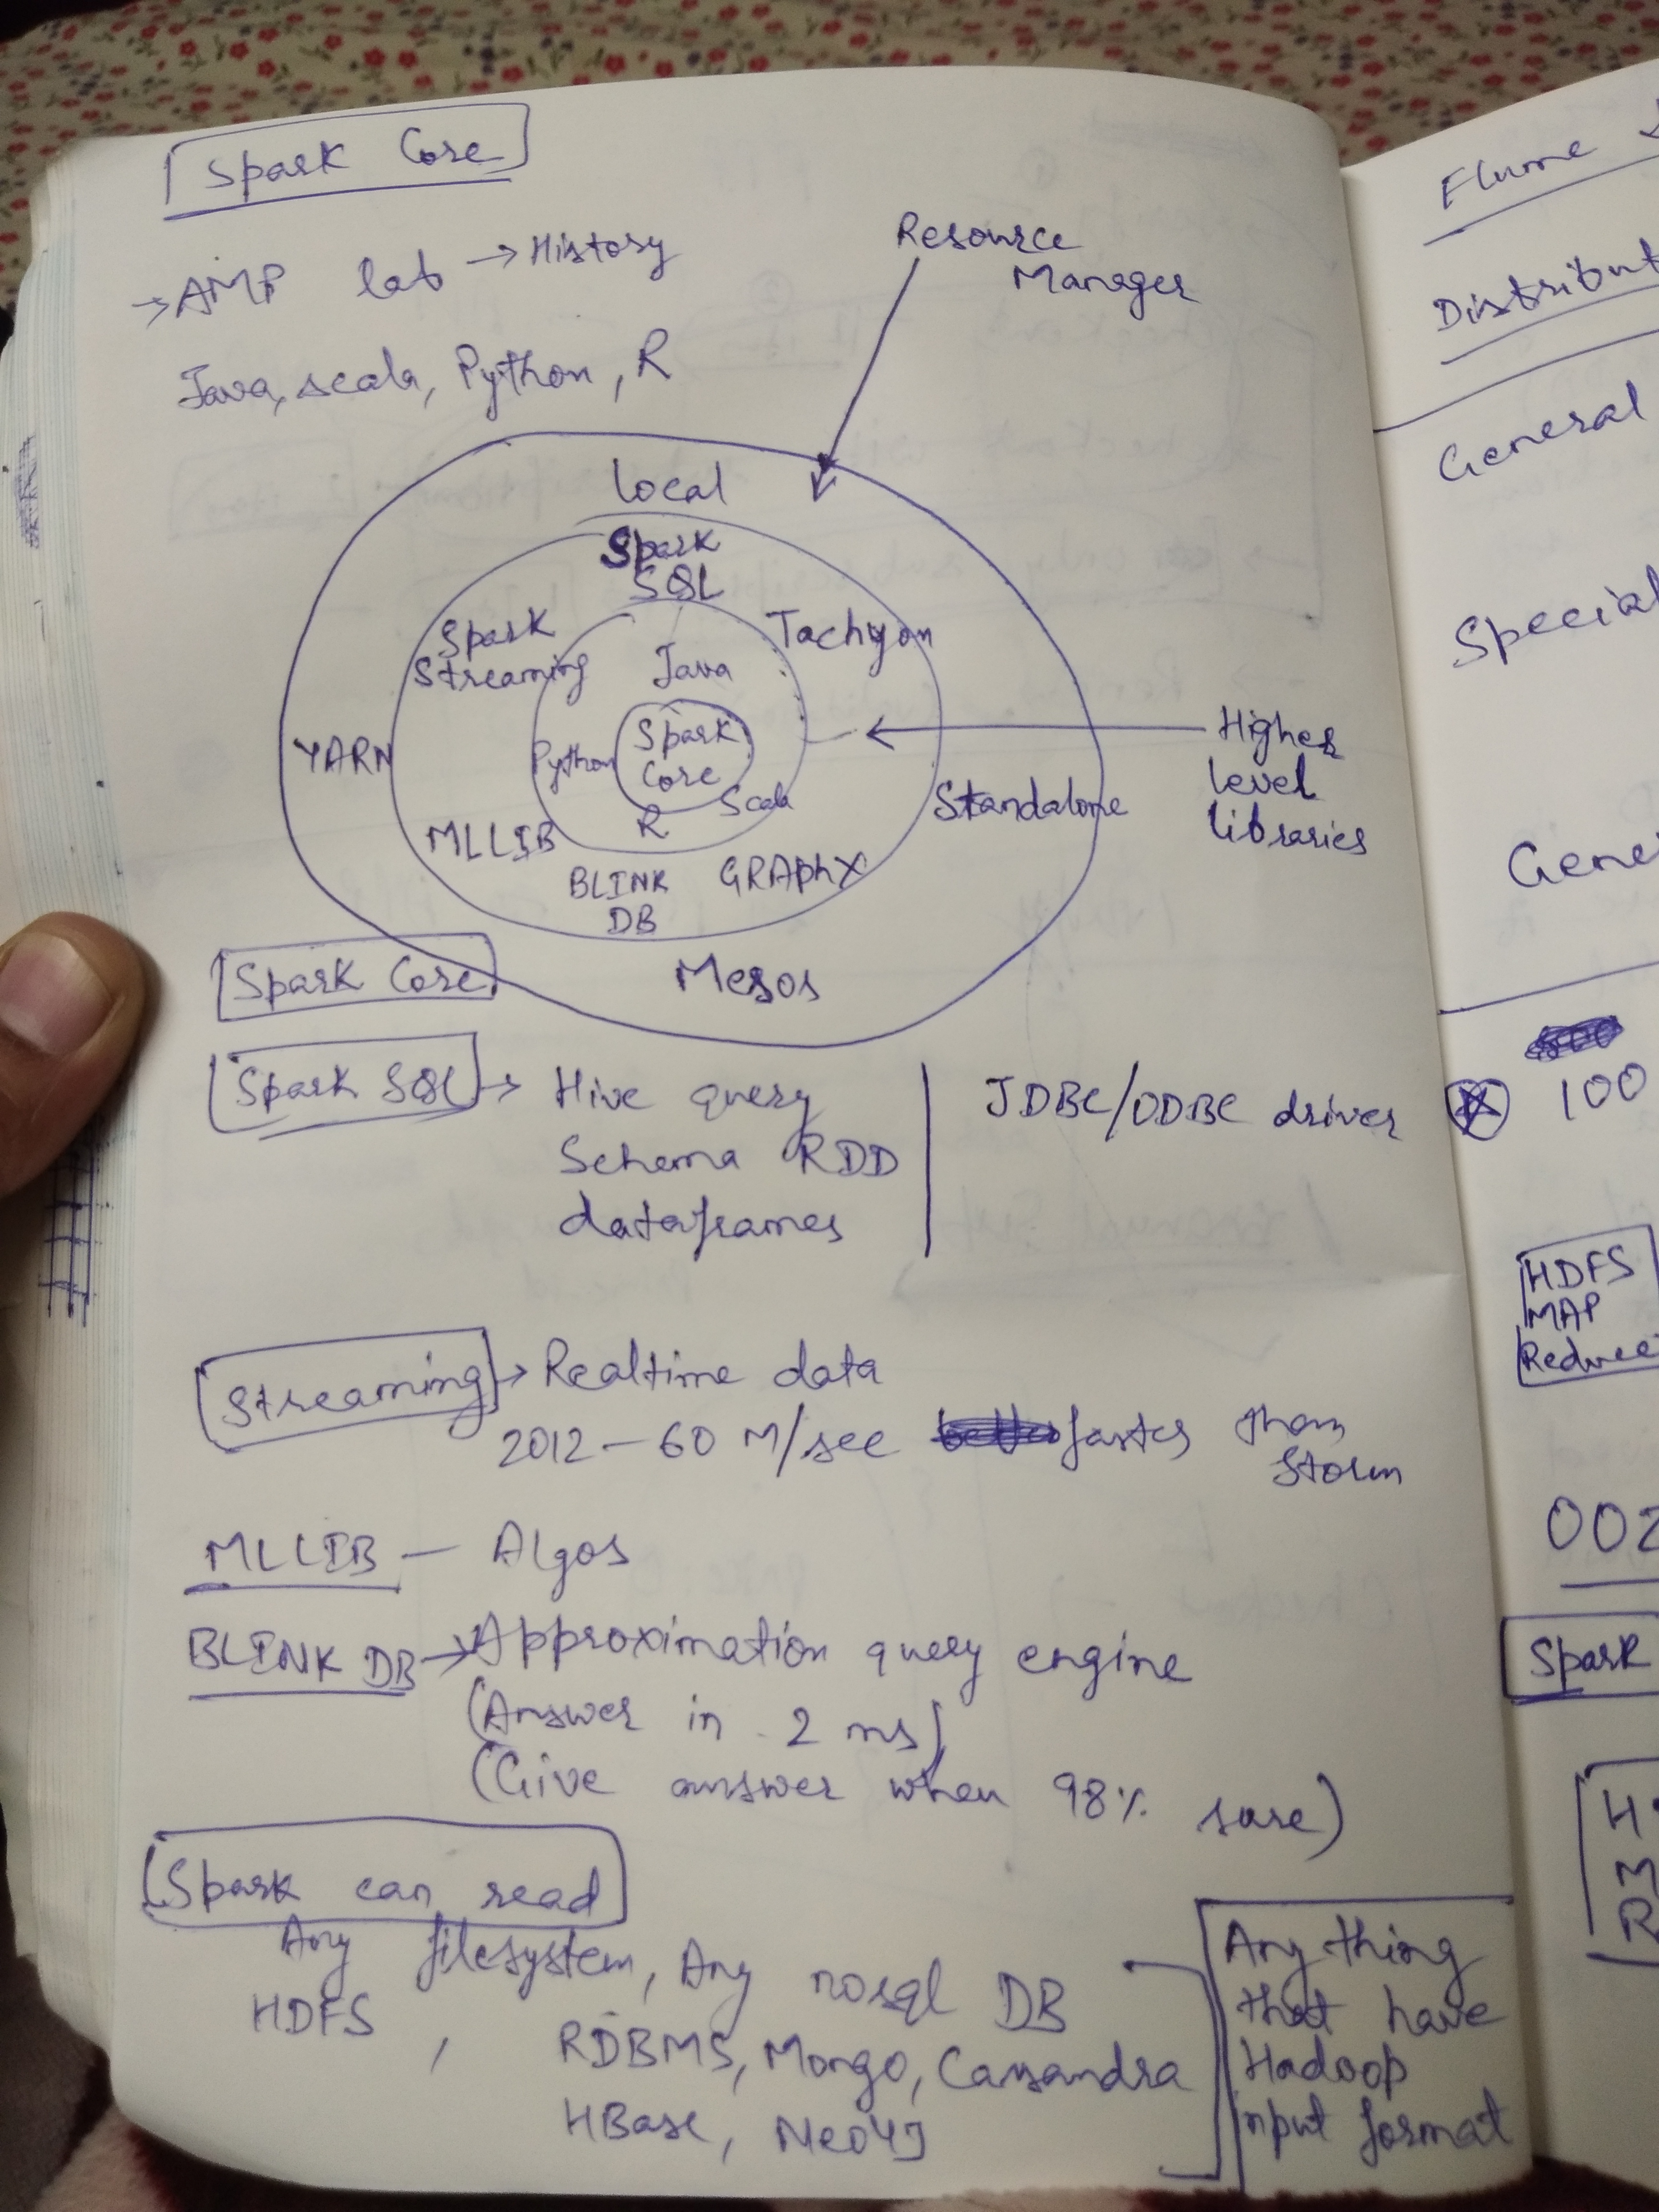 Spark Core
→ AMP lab → History
Java, scala, Python, R
Resource
Manager
local
Spark
SQL
Spark
Streaming
Tachyon
Java
YARN
Python
Spark
Core
Scala
R
Standalone
Higher
level
libraries
MLLIB
BLINK
DB
GRAphX
Mesos
Spark Core
Spark SQL → Hive query
Schema RDD
dataframes
JDBC/ODBC driver
Streaming → Realtime data
2012 – 60 M/sec faster than
Storm
MLLIB – Algos
BLINK DB → Approximation query engine
(Answer in 2 ms)
(Give answer when 98% sure)
Spark can read
Any filesystem, Any nosql DB
HDFS , RDBMS, Mongo, Cassandra
HBase, Neo4J
Any thing
that have
Hadoop
input format
Flume
Distribut
General
Special
Gene
100
HDFS
MAP
Reduce
002
Spark
H
M
R